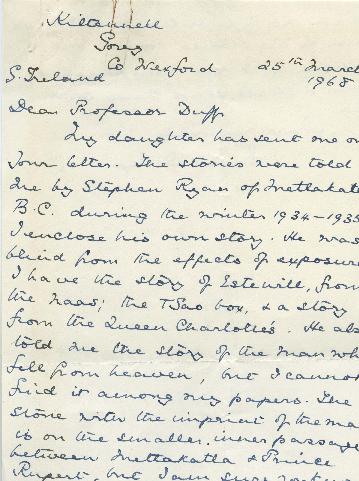 Kiltennell
Gorey
Co Wexford 25th March
S. Ireland 1968
Dear Professor Duff
My daughter has sent me on
your letter. The stories were told
me by Stephen Ryan of Metlakatla
B.C. during the winter 1934-1935
I enclose his own story. He was
blind from the effects of exposure
I have the story of Estewill, from
the Naas; the TSao box, & a story
from the Queen Charlotte's. He also
told me the story of the man who
fell from heaven, but I cannot
find it among my papers. The
stone with the imprint of the man
is on the smaller, inner passage
between Metlakatla & Prince
Rupert, but I am sure